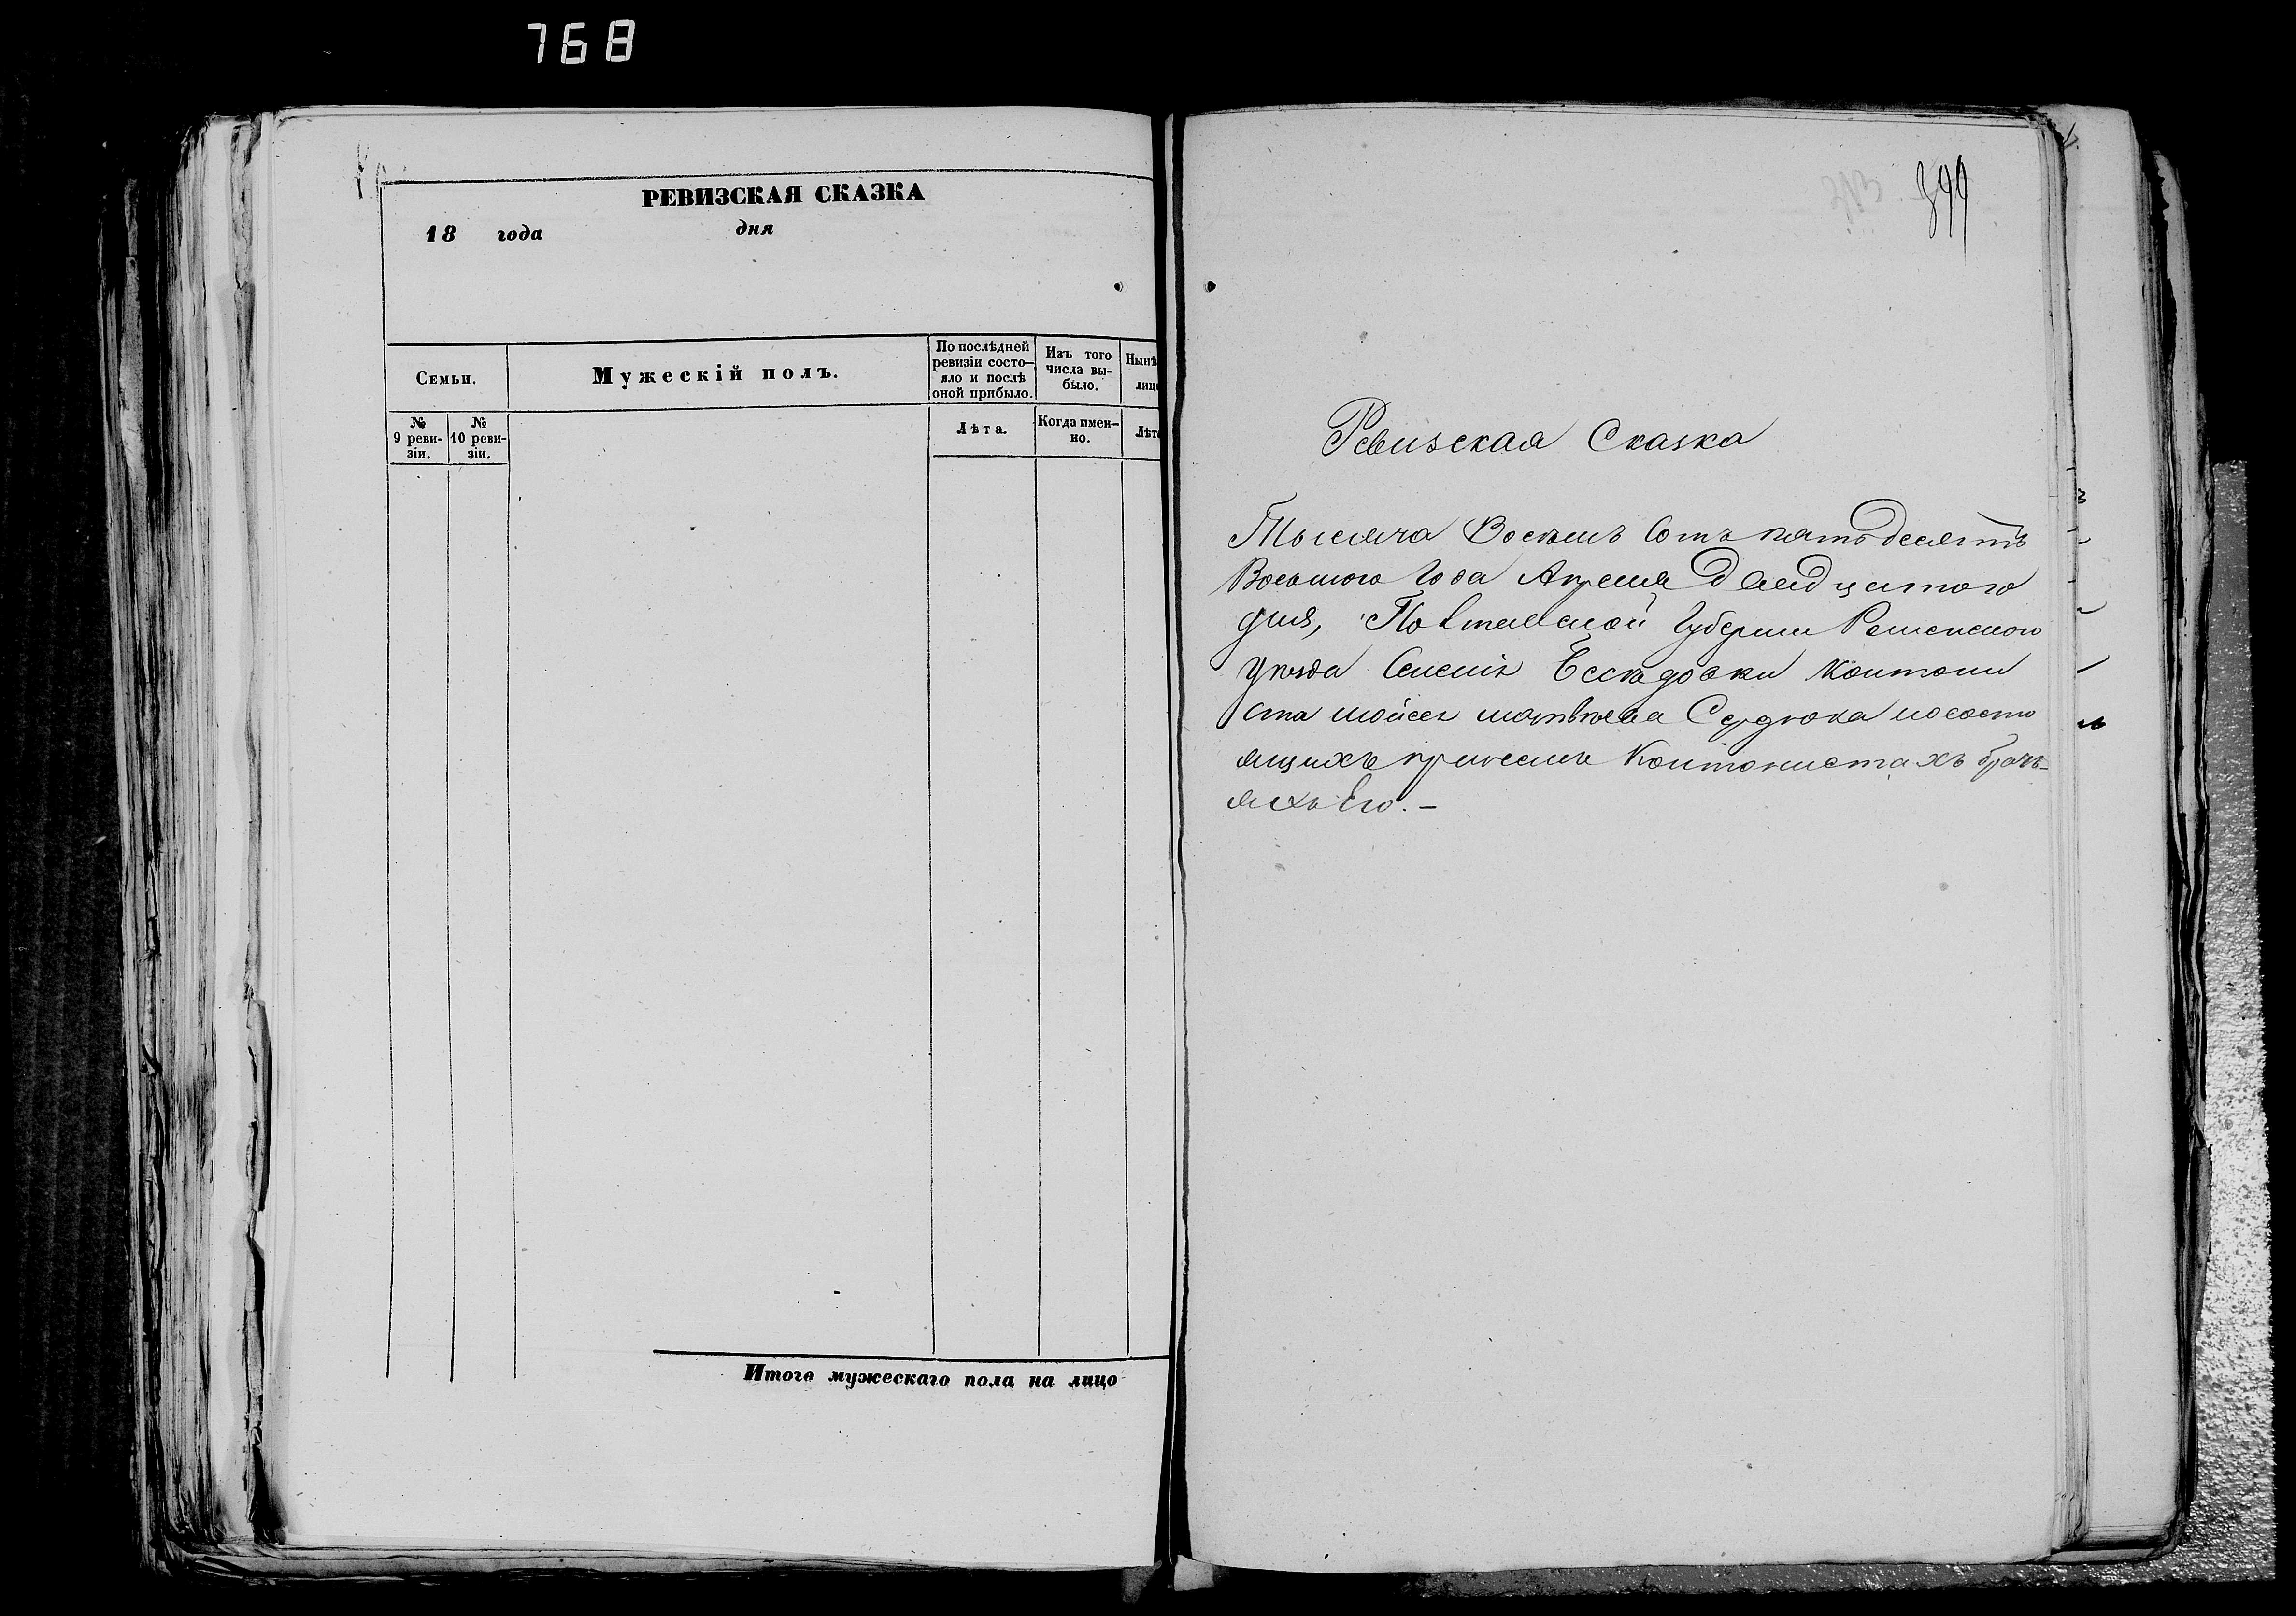 768
РЕВИЗСКАЯ СКАЗКА
18 года дня
Семьи.
Мужескій полъ.
По послѣдней ревизіи состо-
яло и послѣ
оной прибыло.
Изъ того
числа вы-
было.
Нынѣ
лиц
№
9 реви-
зіи.
№
10 реви-
зіи.
Лѣта.
Когда имен-
но.
Лѣт
Итого мужескаго пола на лицо
Ревизская Сказка
Тысяча Восемь Сотъ пятьдесятъ
Восьмого Года Апреля Двадцатого
дня, Полтавской Губернии Роменского
уезда Кантони
ста мойсея матвѣева Сердюка
ящихъ Кантонистахъ брать-
яхъ Его. –